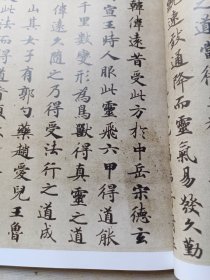 之道當得
純遠致通降而靈氣易發久勤
韓偉遠昔受此方於中岳宋德玄
宣王時人服此靈飛六甲得道能
千里數變形為鳥獸得真靈之道
偉遠久隨之乃得受法行之道成
山其女子有郭勺藥趙愛兒王魯
法而得道者